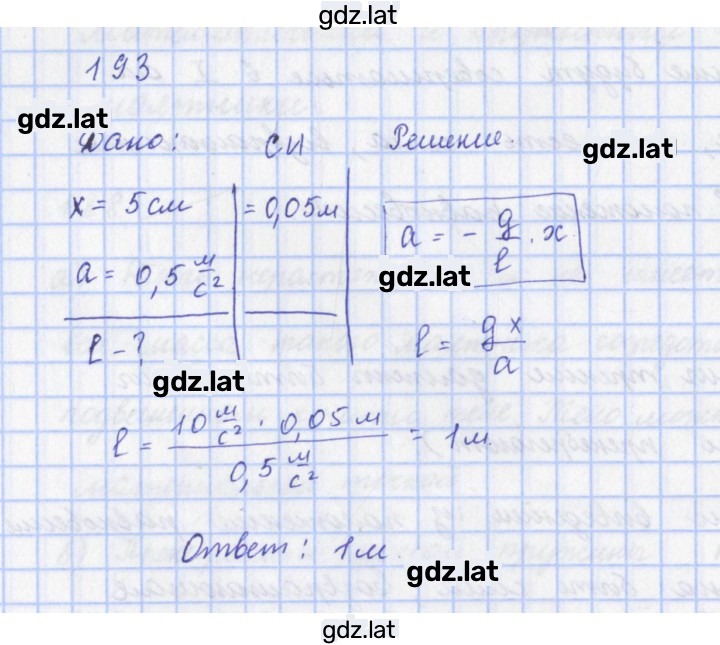 gdz.lat
193
gdz.lat
Дано: СИ Решение.
gdz.lat
x = 5 см = 0,05 м
a = - g/l · x
a = 0,5 м/с²
gdz.lat
l - ?
l = gx/a
gdz.lat
l = (10 м/с² · 0,05 м)/(0,5 м/с²) = 1 м
Ответ: 1 м
gdz.lat
gdz.lat